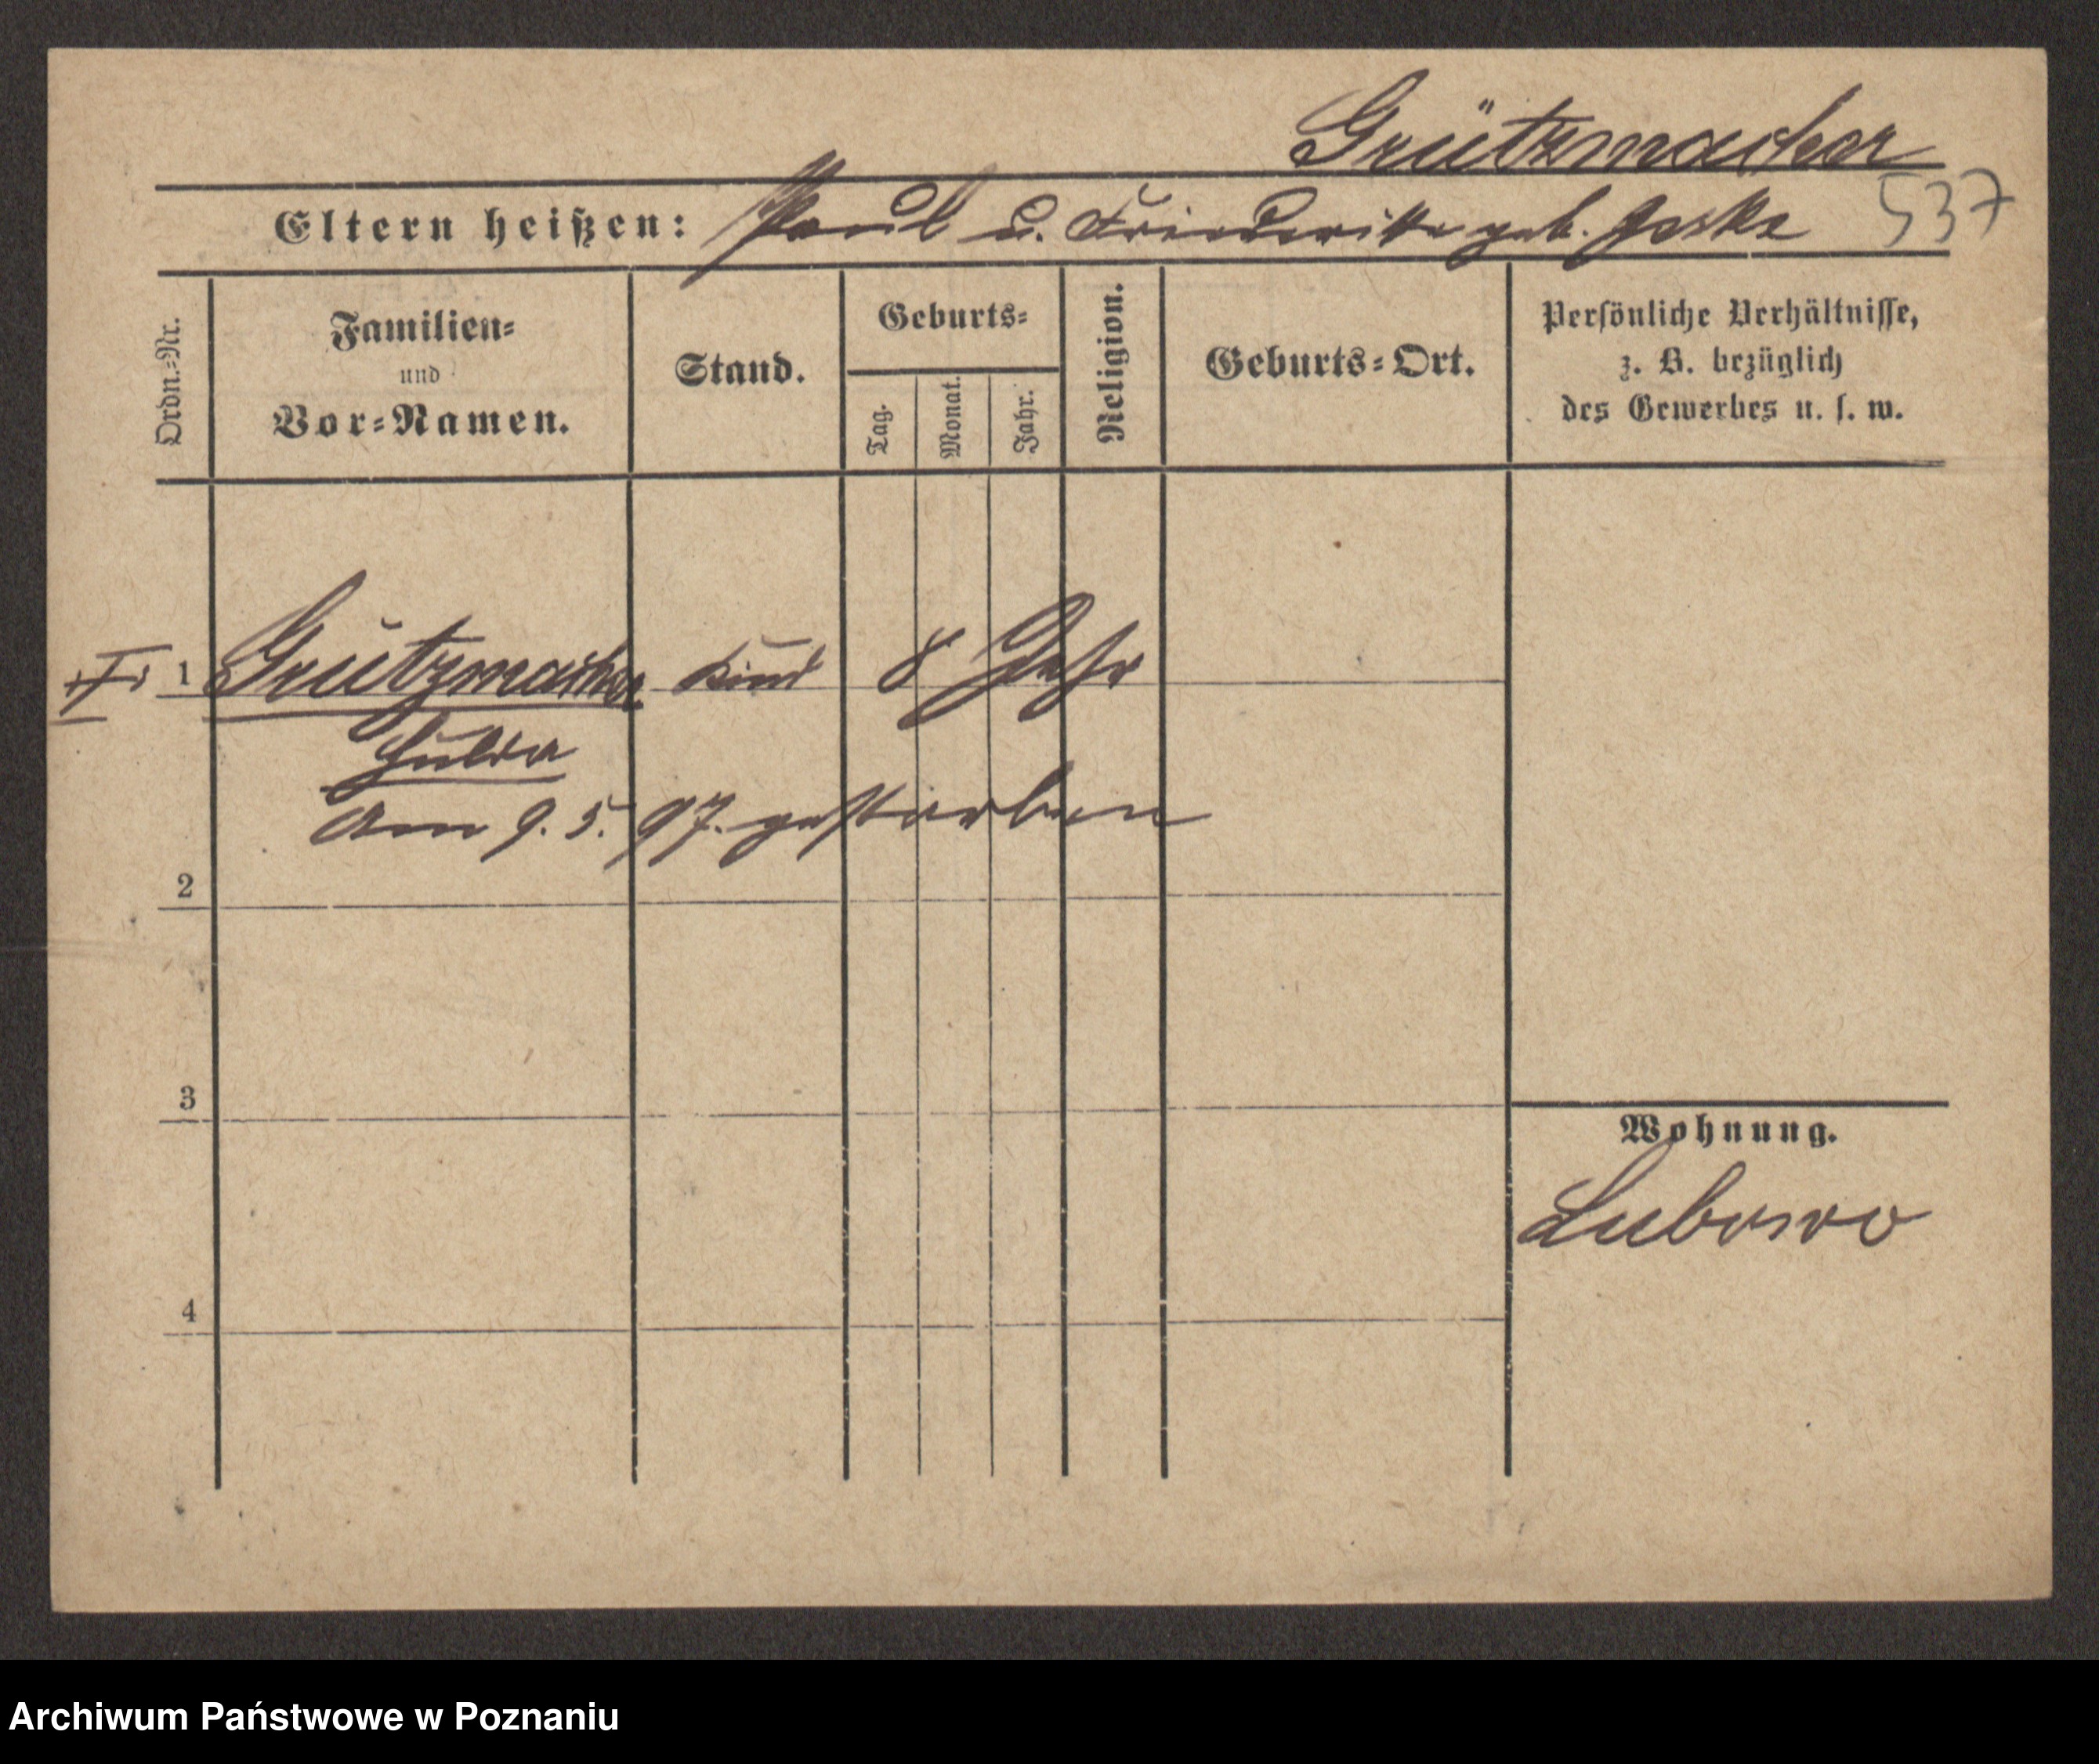 Grützmacher
Eltern heißen: Paul u. Friederike geb. Jeske 537
Ordn.-Nr.
Familien-
und
Vor-Namen.
Stand.
Geburts-
Tag.
Monat.
Jahr.
Religion.
Geburts-Ort.
Persönliche Verhältnisse,
z. B. bezüglich
des Gewerbes u. s. w.
1 Grützmacher Kind 8 Jahr
Hulda
Am 9. 5. 97. gestorben
2
3
Wohnung.
Lubowo
4
Archiwum Państwowe w Poznaniu